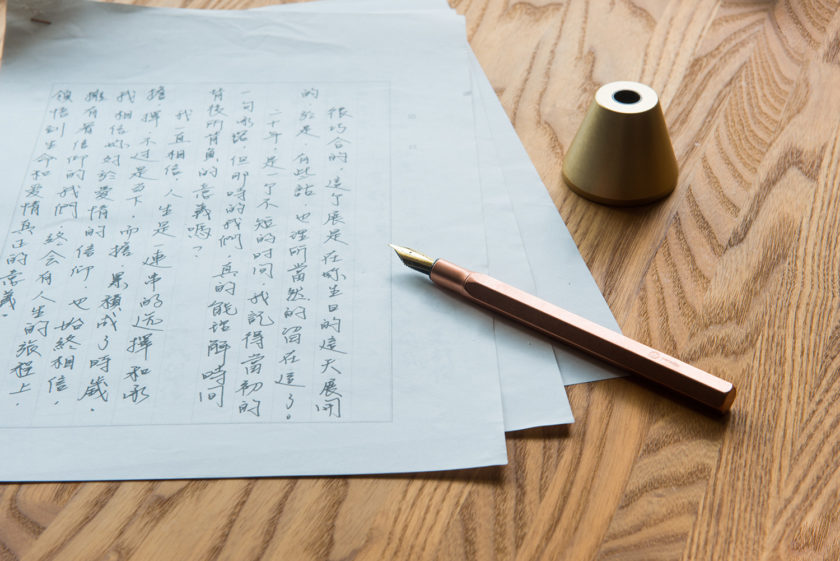 很巧合的，這个展是在妳生日的這天展開
的，於是，有些話，也理所當然的留在這了。
二十年是一个不短的時間，我記得當初的
一句承諾，但那時的我們，真的能瞭解時間
背後所背負的意義嗎？
我一直相信，人生是一連串的選擇和承
擔，擇，不过是当下，而擔，累積成了時歲，
我相信妳对於愛情的信仰，也始終相信，
擁有着信仰的我們，終会有人生的旅程上，
領悟到生命和愛情真正的意義。